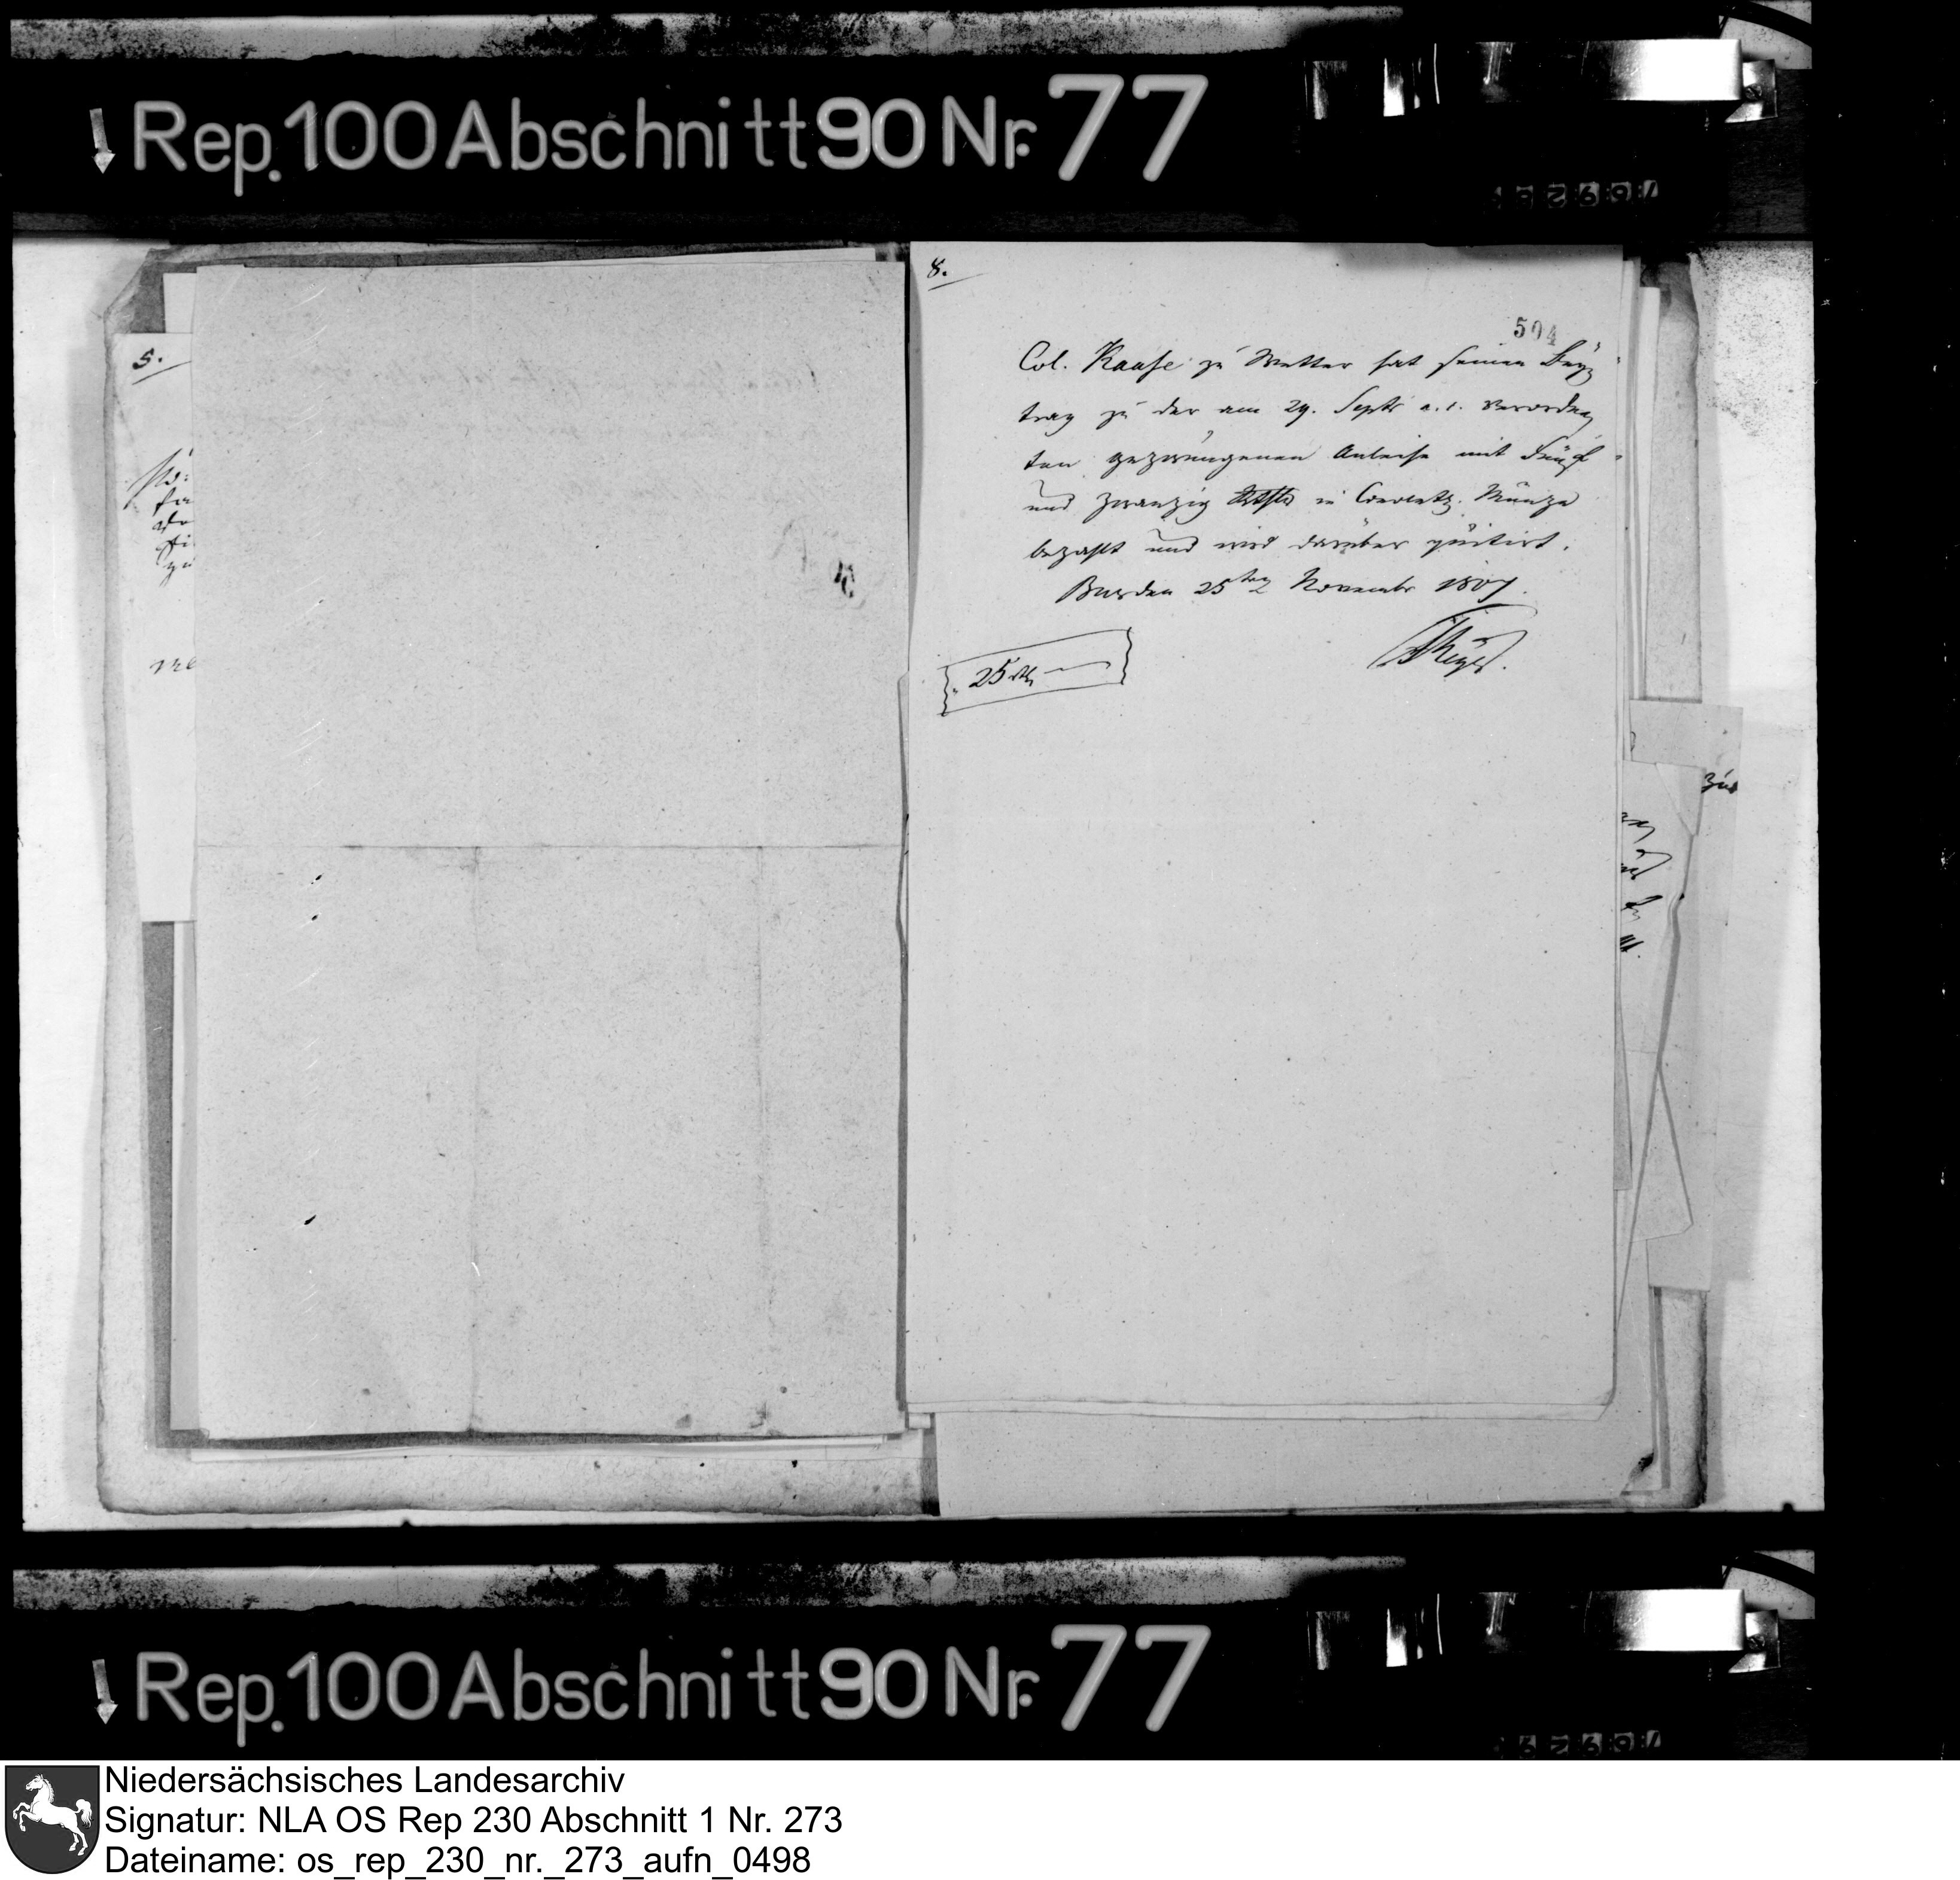 Rep. 100 Abschnitt 90 Nr. 77
8.
504
Col. Raase zu Wetter hat seinen Bey-
trag zu der am 29. Septr a. c. verordne-
ten gezwungenen Anleihe mit Fünf
und zwanzig Rthlr in Convents. Münze
bezahlt und wird darüber quitirt.
Buer den 25ten Novembr 1807.
25 rth
5.
zur
Rep. 100 Abschnitt 90 Nr. 77
Niedersächsisches Landesarchiv
Signatur: NLA OS Rep 230 Abschnitt 1 Nr. 273
Dateiname: os_rep_230_nr._273_aufn_0498